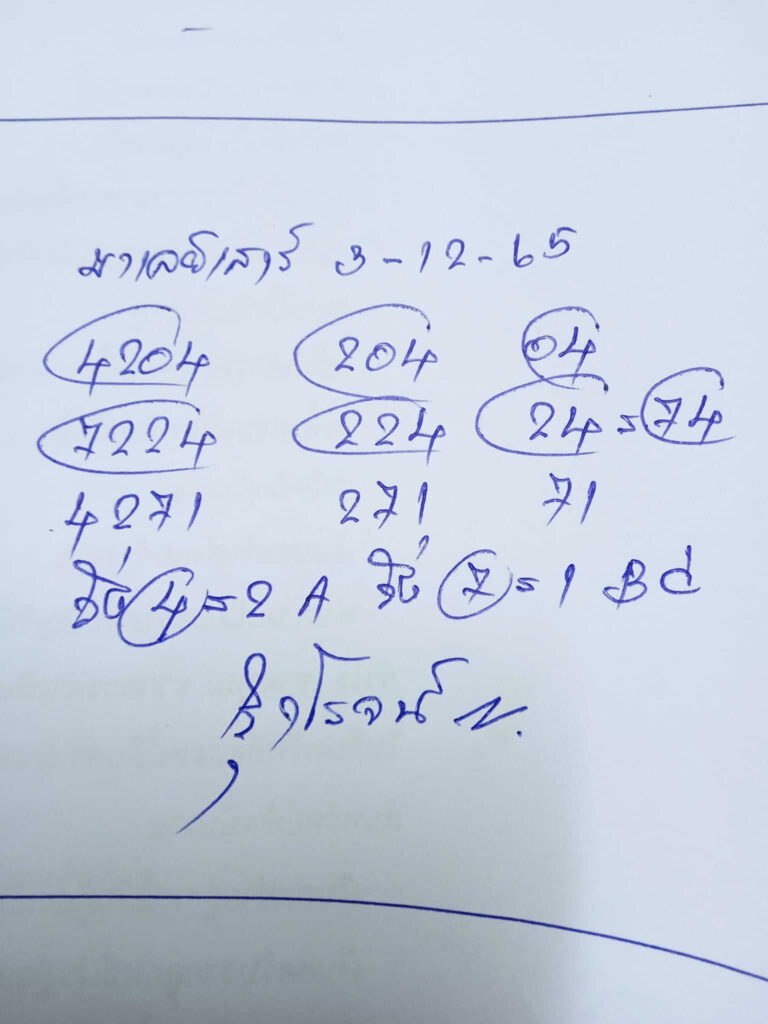 มาเลย์เสาร์ 3-12-65
4204 204 04
7224 224 24=74
4271 271 71
วิ่ง 4=2 A วิ่ง 7=1 B C
โรจน์ N.